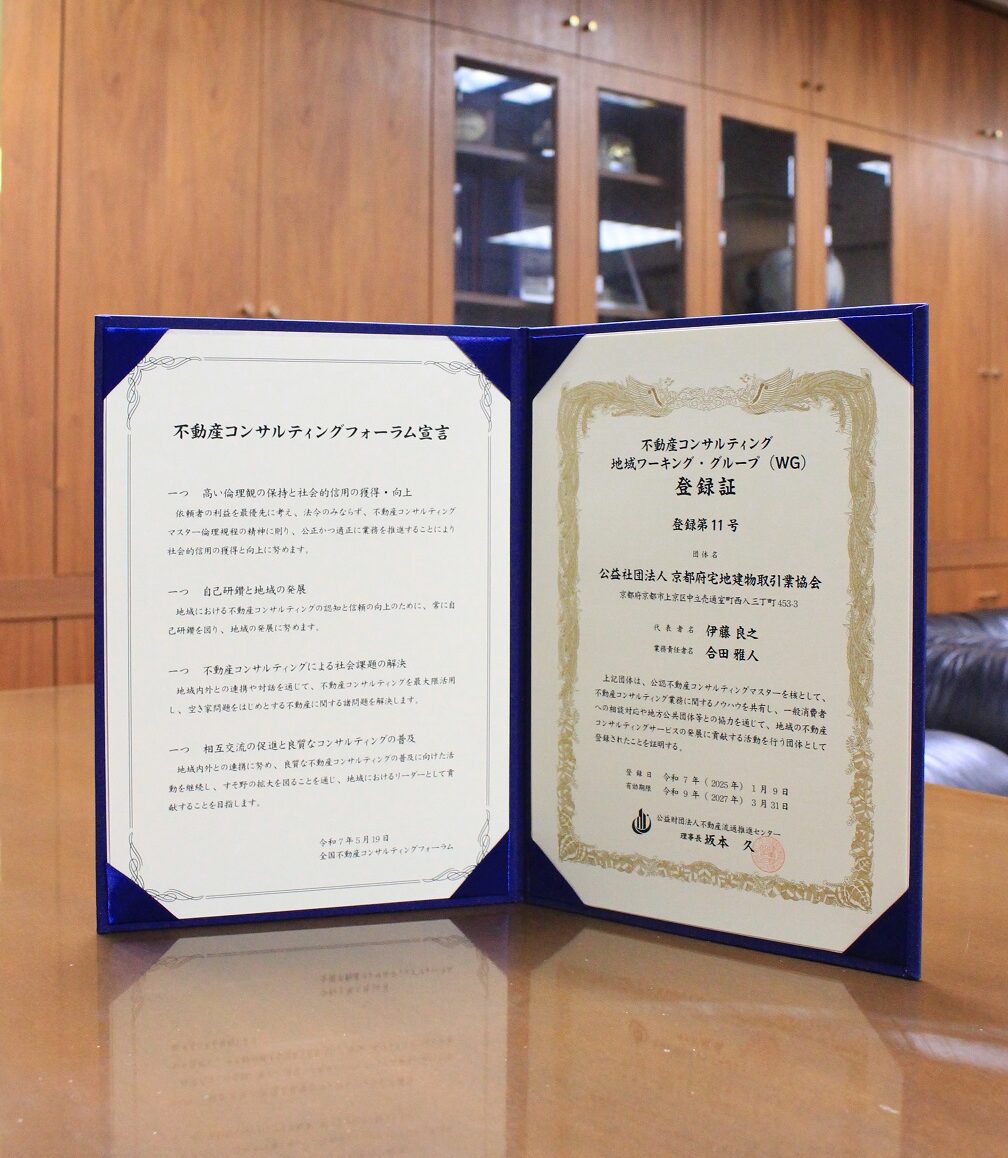 不動産コンサルティングフォーラム宣言
一つ　高い倫理観の保持と社会的信用の獲得・向上
依頼者の利益を最優先に考え、法令のみならず、不動産コンサルティング
マスター倫理規程の精神に則り、公正かつ適正に業務を推進することにより
社会的信用の獲得と向上に努めます。
一つ　自己研鑽と地域の発展
地域における不動産コンサルティングの認知と信頼の向上のために、常に自
己研鑽を図り、地域の発展に努めます。
一つ　不動産コンサルティングによる社会課題の解決
地域内外との連携や対話を通じて、不動産コンサルティングを最大限活用
し、空き家問題をはじめとする不動産に関する諸問題を解決します。
一つ　相互交流の促進と良質なコンサルティングの普及
地域内外との連携に努め、良質な不動産コンサルティングの普及に向けた活
動を継続し、すそ野の拡大を図ることを通じ、地域におけるリーダーとして貢
献することを目指します。
令和7年5月19日
全国不動産コンサルティングフォーラム
不動産コンサルティング
地域ワーキング・グループ（WG）
登録証
登録第11号
団体名
公益社団法人 京都府宅地建物取引業協会
京都府京都市上京区中立売通室町西入三丁町453-3
代表者名　伊藤 良之
業務責任者名　合田 雅人
上記団体は、公認不動産コンサルティングマスターを核として、
不動産コンサルティング業務に関するノウハウを共有し、一般消費者
への相談対応や地方公共団体等との協力を通じて、地域の不動産
コンサルティングサービスの発展に貢献する活動を行う団体として
登録されたことを証明する。
登録日　令和7年（2025年）1月9日
有効期限　令和9年（2027年）3月31日
公益財団法人不動産流通推進センター
理事長 坂本　久